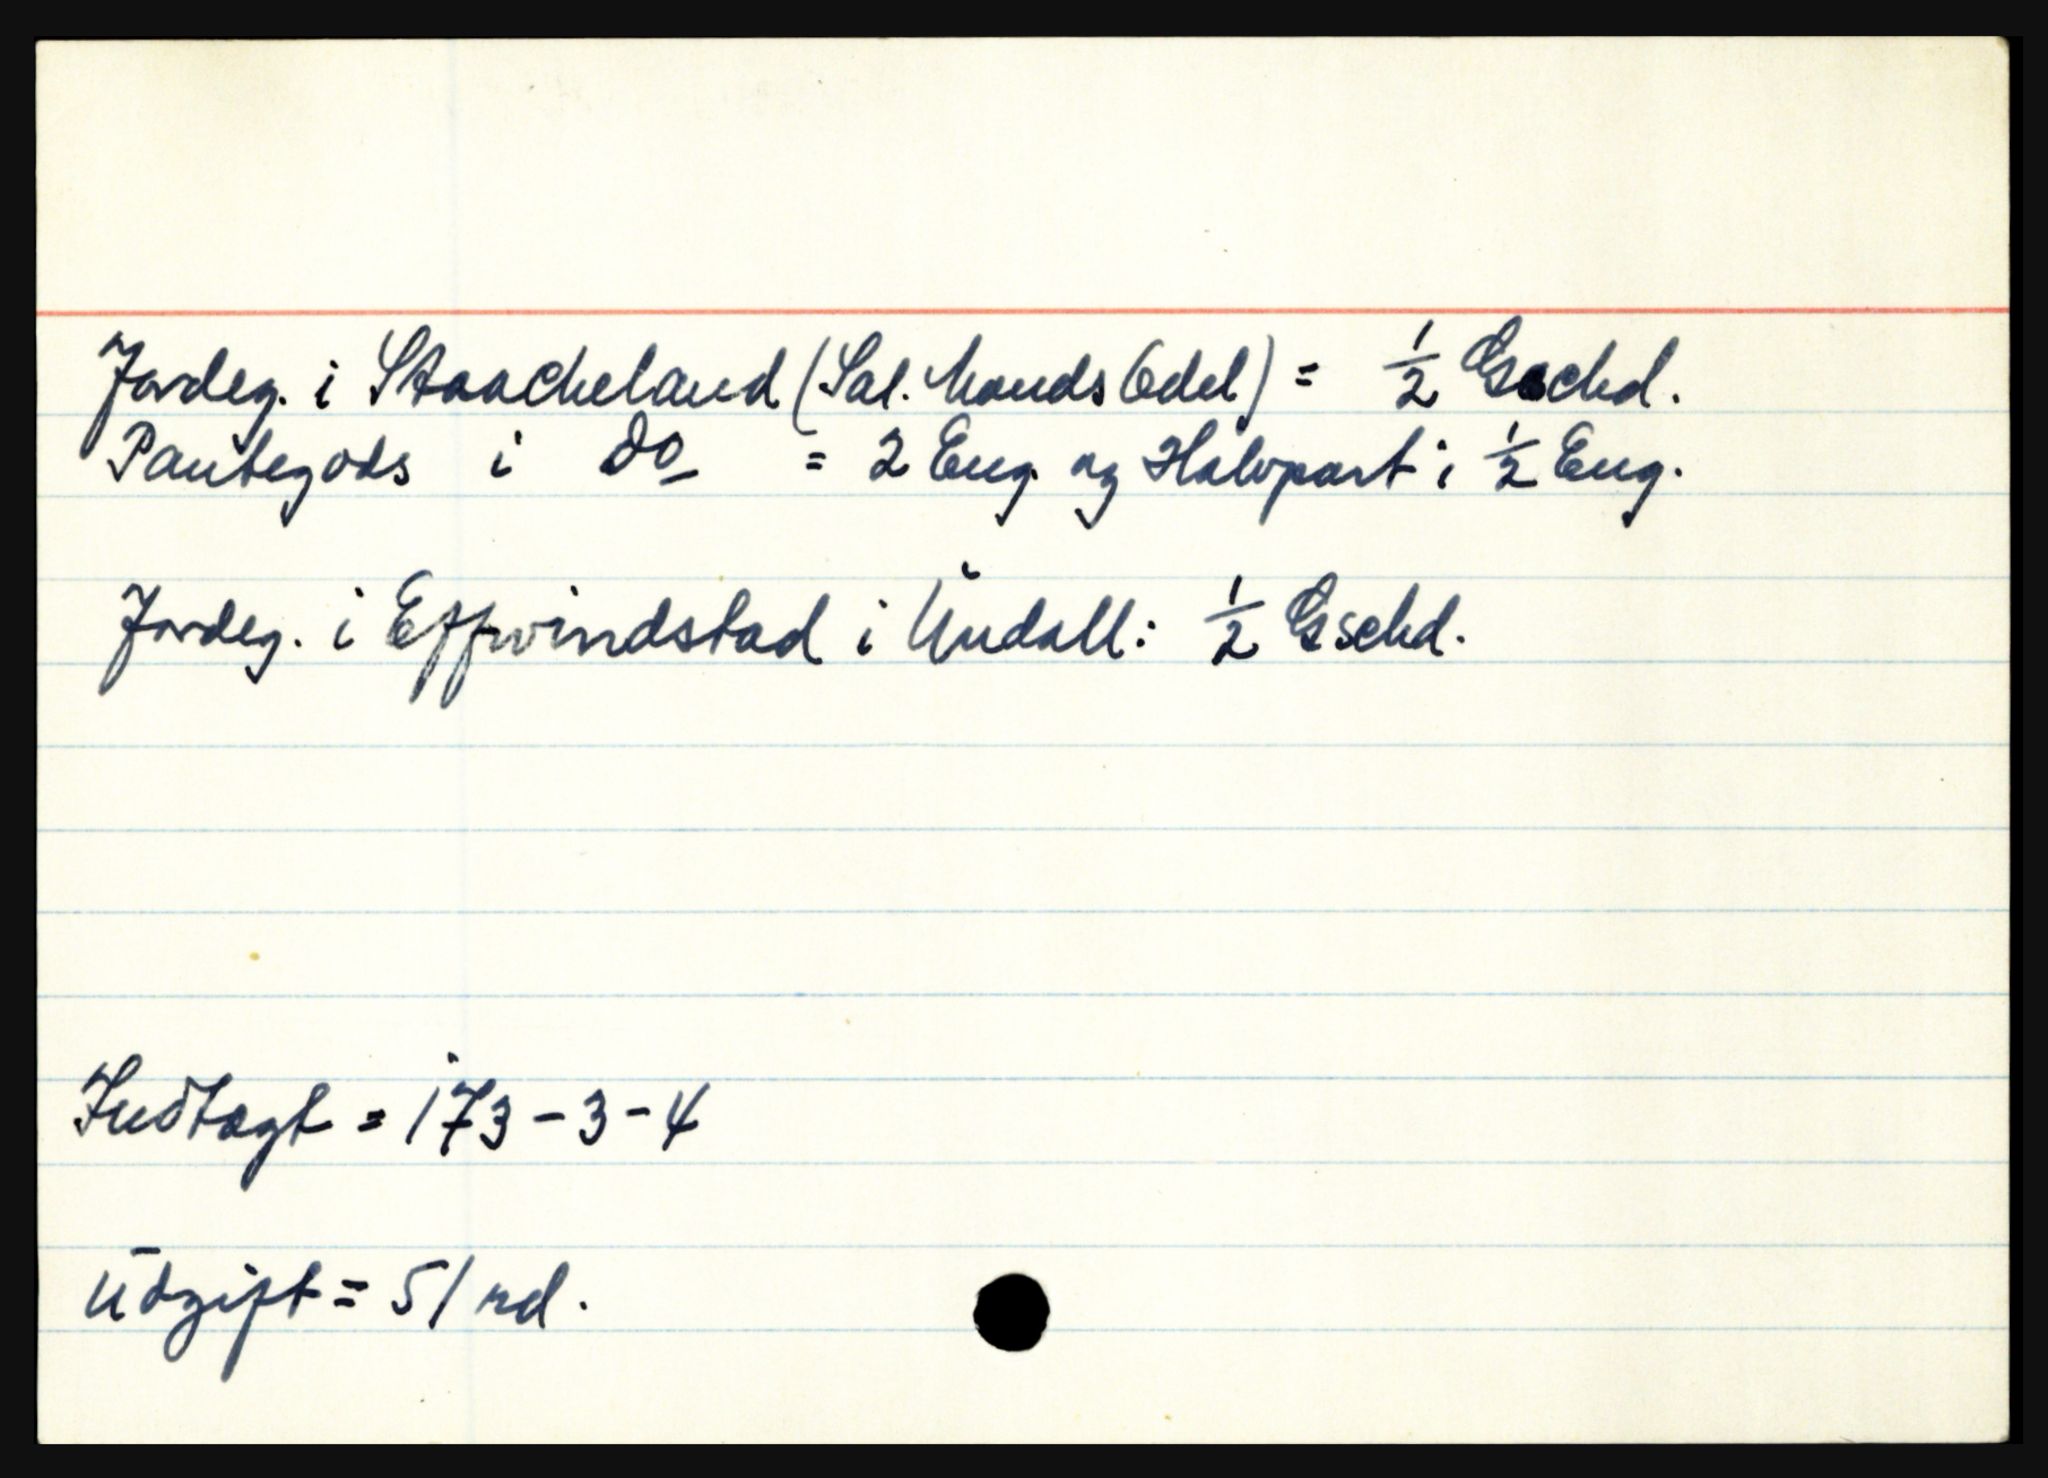 Jordeg. i Staacheland (Sal. Mands Odel) = 1/2 Gschd.
Pantegods i do = 2 Eng. og Halvpart i 1/2 Eng.
Jordeg. i Effwindstad i Undall: 1/2 Gschd.
Indtægt = 173-3-4
Udgift = 51 rd.